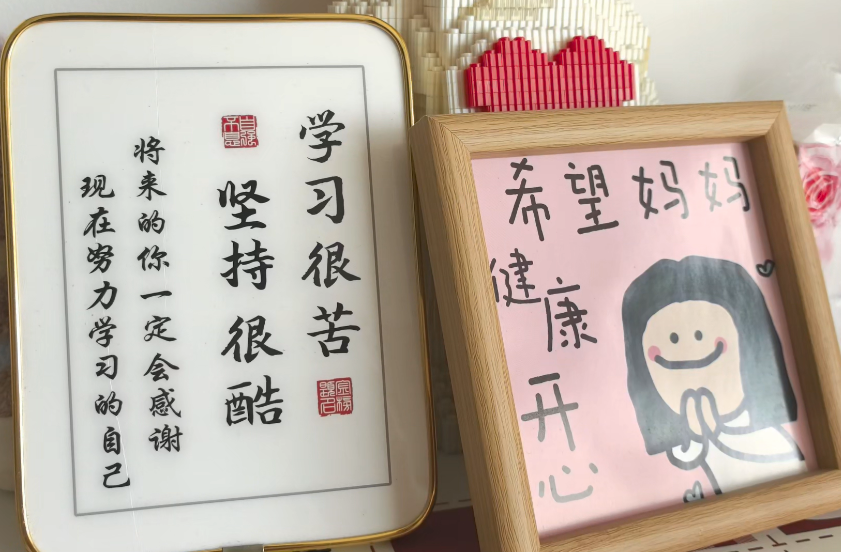 学习很苦
坚持很酷
自强不息
将来的你一定会感谢
现在努力学习的自己
希望妈妈
健康
开心